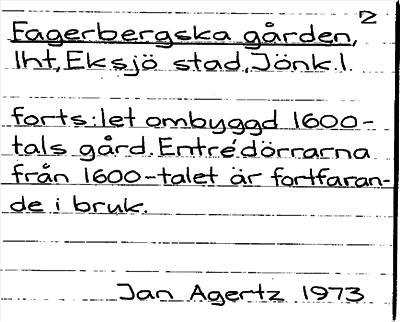 2
Fagerbergska gården,
lht, Eksjö stad, Jönk.l.
forts: let ombyggd 1600-
tals gård. Entrédörrarna
från 1600-talet är fortfaran-
de i bruk.
Jan Agertz 1973